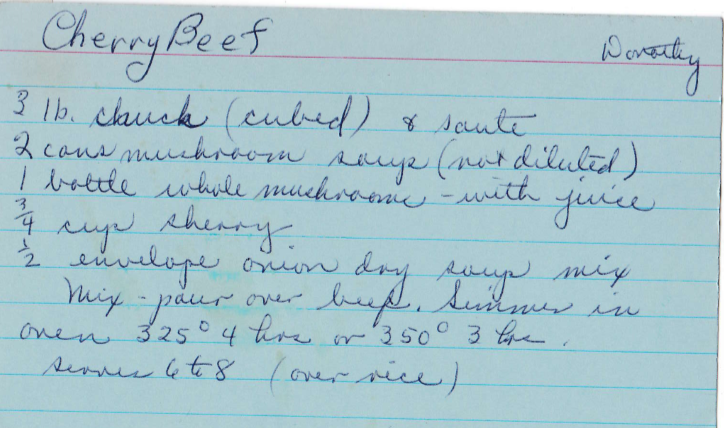 Cherry Beef
Dorothy
3 lb. chuck (cubed) & saute
2 cans mushroom soup (not diluted)
1 bottle whole mushrooms - with juice
3/4 cup sherry
1/2 envelope onion dry soup mix
Mix - pour over beef. Simmer in
oven 325° 4 hrs or 350° 3 hrs.
serves 6 to 8 (over rice)